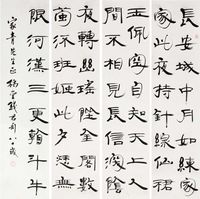 長安城中月如練家
家此夜持針線仙裙
玉佩空自知天上人
間不相見長信深陰
夜轉幽瑤階金閣數
螢流班姬此夕愁無
限河漢三更看斗牛
青先生正